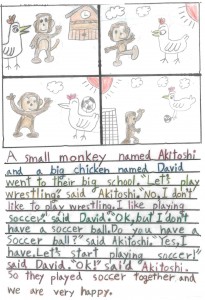 A small monkey named Akitoshi
and a big chicken named David
went to their big school. "Let's play
wrestling." said Akitoshi. "No, I don't
like to play wrestling. I like playing
soccer." said David. "Ok, but I don't
have a soccer ball. Do you have a
soccer ball?" said Akitoshi. "Yes, I
have. Let's start playing soccer!"
said David. "Ok!" said Akitoshi.
So they played soccer together and
we are very happy.